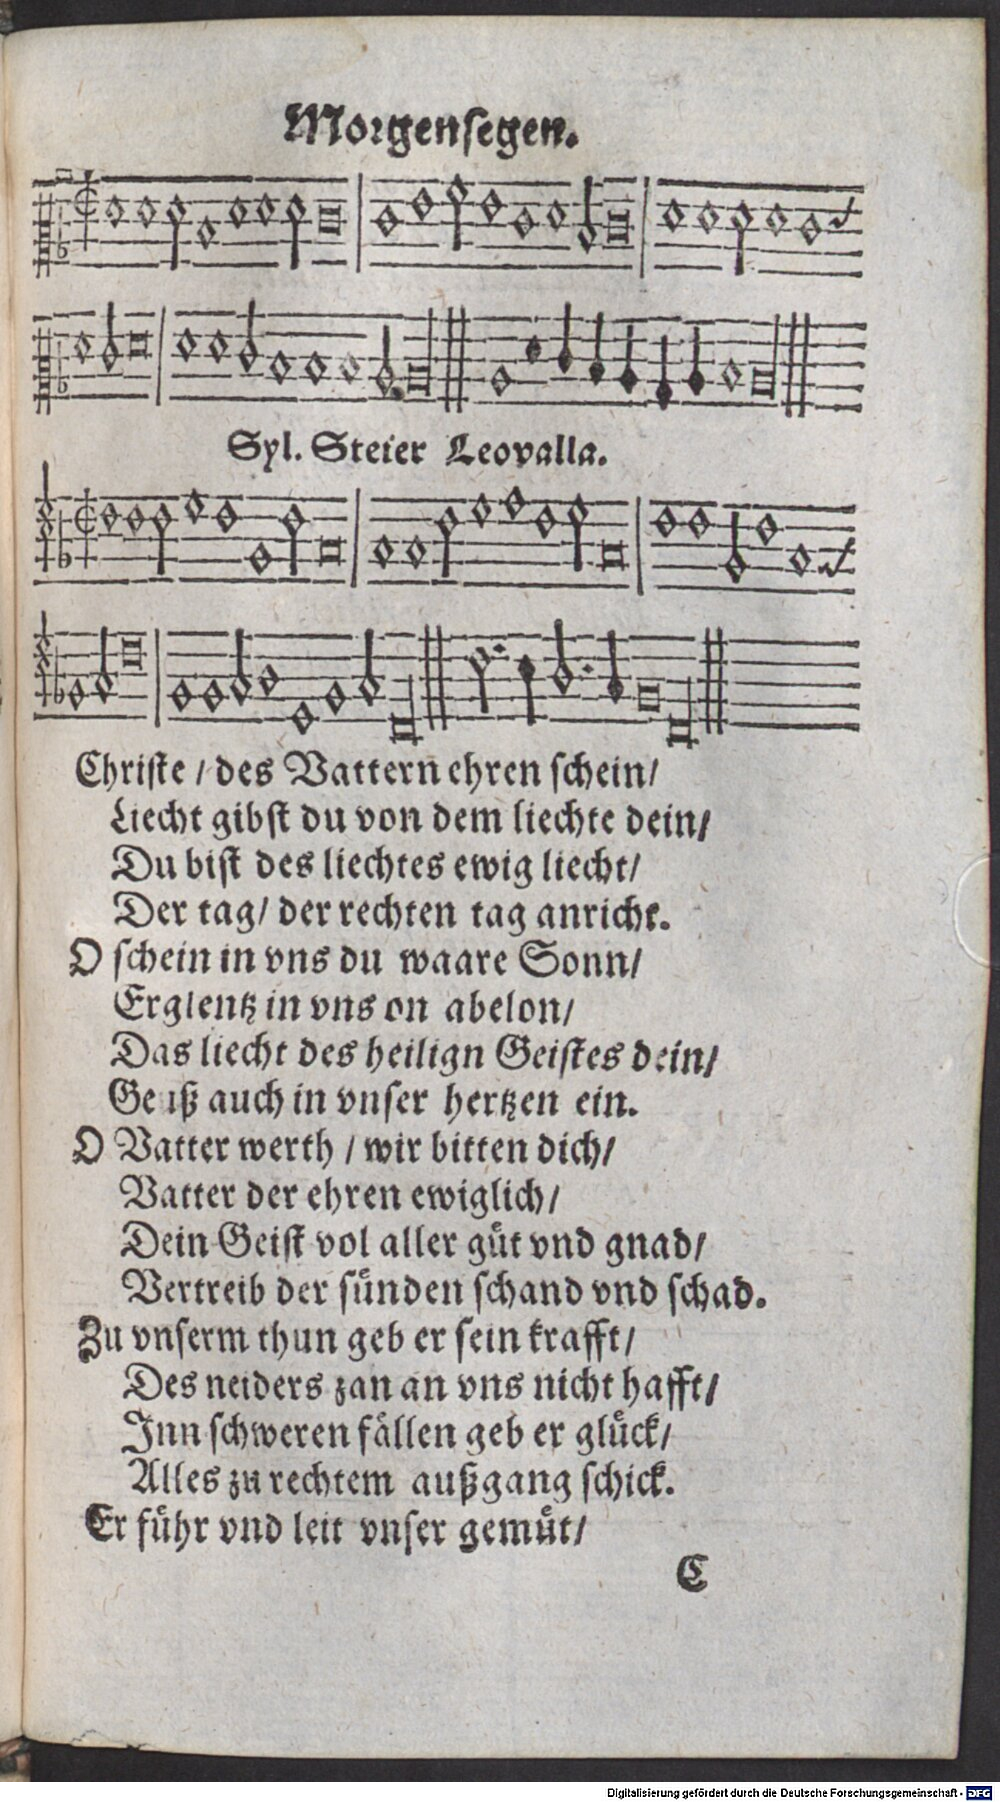 Morgensegen.
Syl. Steier Leovalla.
Christe / des Vattern ehren schein/
Liecht gibst du von dem liechte dein/
Du bist des liechtes ewig liecht/
Der tag/ der rechten tag anricht.
O schein in vns du waare Sonn/
Erglentz in vns on abelon/
Das liecht des heilign Geistes dein/
Geuß auch in vnser hertzen ein.
O Vatter werth / wir bitten dich/
Vatter der ehren ewiglich/
Dein Geist vol aller guͤt vnd gnad/
Vertreib der suͤnden schand vnd schad.
Zu vnserm thun geb er sein krafft/
Des neiders zan an vns nicht hafft/
Inn schweren faͤllen geb er gluͤck/
Alles zu rechtem außgang schick.
Er fuͤhr vnd leit vnser gemuͤt/
C
Digitalisierung gefördert durch die Deutsche Forschungsgemeinschaft - DFG